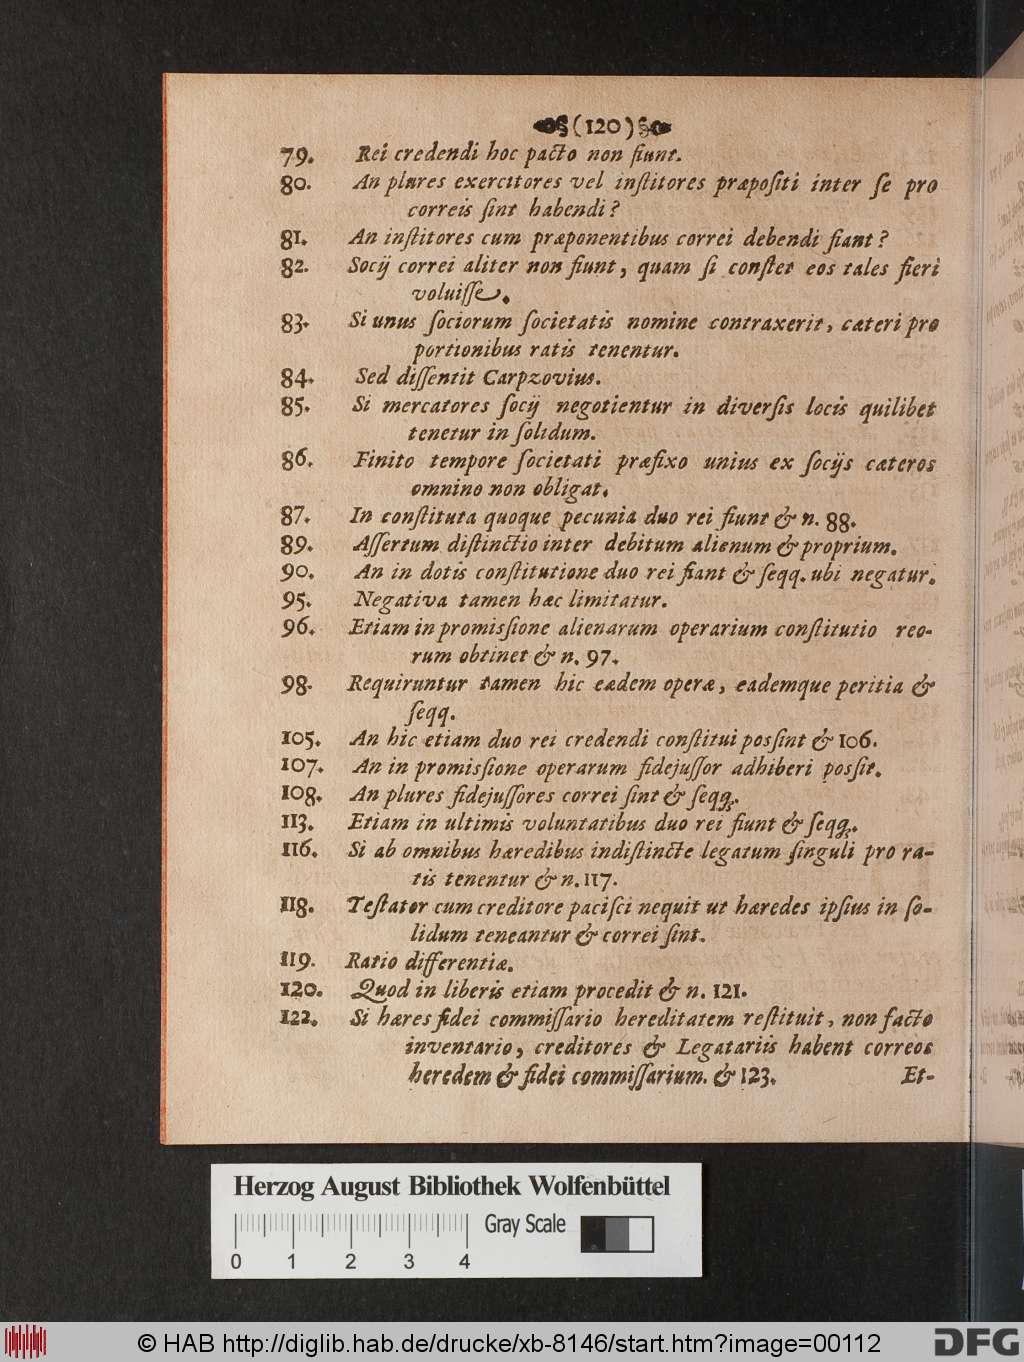 (120)
79. Rei credendi hoc pacto non fiunt.
80. An plures exercitores vel inſtitores præpoſiti inter ſe pro
correis ſint habendi?
81. An inſtitores cum præponentibus correi debendi fiant?
82. Socij correi aliter non fiunt, quam ſi conſtet eos tales fieri
voluiſſe.
83. Si unus ſociorum ſocietatis nomine contraxerit, cæteri pro
portionibus ratis tenentur.
84. Sed diſſentit Carpzovius.
85. Si mercatores ſocij negotientur in diverſis locis quilibet
tenetur in ſolidum.
86. Finito tempore ſocietati præfixo unius ex ſocijs cæteros
omnino non obligat.
87. In conſtituta quoque pecunia duo rei fiunt & n. 88.
89. Aſſertum diſtinctio inter debitum alienum & proprium.
90. An in dotis conſtitutione duo rei fiant & ſeqq. ubi negatur.
95. Negativa tamen hæc limitatur.
96. Etiam in promiſſione alienarum operarium conſtitutio reo-
rum obtinet & n. 97.
98. Requiruntur tamen hic eædem operæ, eademque peritia &
ſeqq.
105. An hic etiam duo rei credendi conſtitui posſint & 106.
107. An in promiſſione operarum fidejuſſor adhiberi posſit.
108. An plures fidejuſſores correi ſint & ſeqq.
113. Etiam in ultimis voluntatibus duo rei fiunt & ſeqq.
116. Si ab omnibus hæredibus indiſtincte legatum ſinguli pro ra-
tis tenentur & n. 117.
118. Teſtator cum creditore paciſci nequit ut hæredes ipſius in ſo-
lidum teneantur & correi ſint.
119. Ratio differentiæ.
120. Quod in liberis etiam procedit & n. 121.
122. Si hæres fidei commiſſario hereditatem reſtituit, non facto
inventario, creditores & Legatariis habent correos
heredem & fidei commiſſarium. & 123. Et-
Herzog August Bibliothek Wolfenbüttel
Gray Scale
0 1 2 3 4
© HAB http://diglib.hab.de/drucke/xb-8146/start.htm?image=00112
DFG